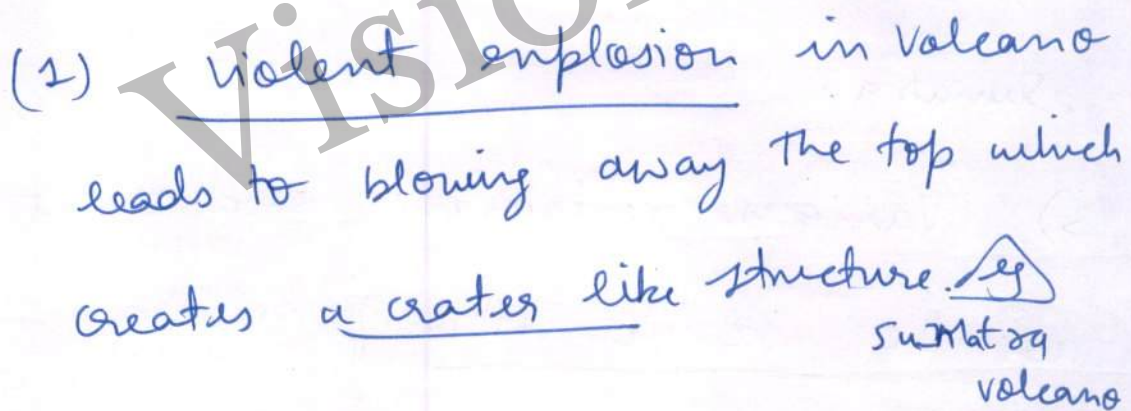 Vision
(1) violent explosion in Volcano
leads to blowing away the top which
creates a crater like structure. eg
sumatra
volcano